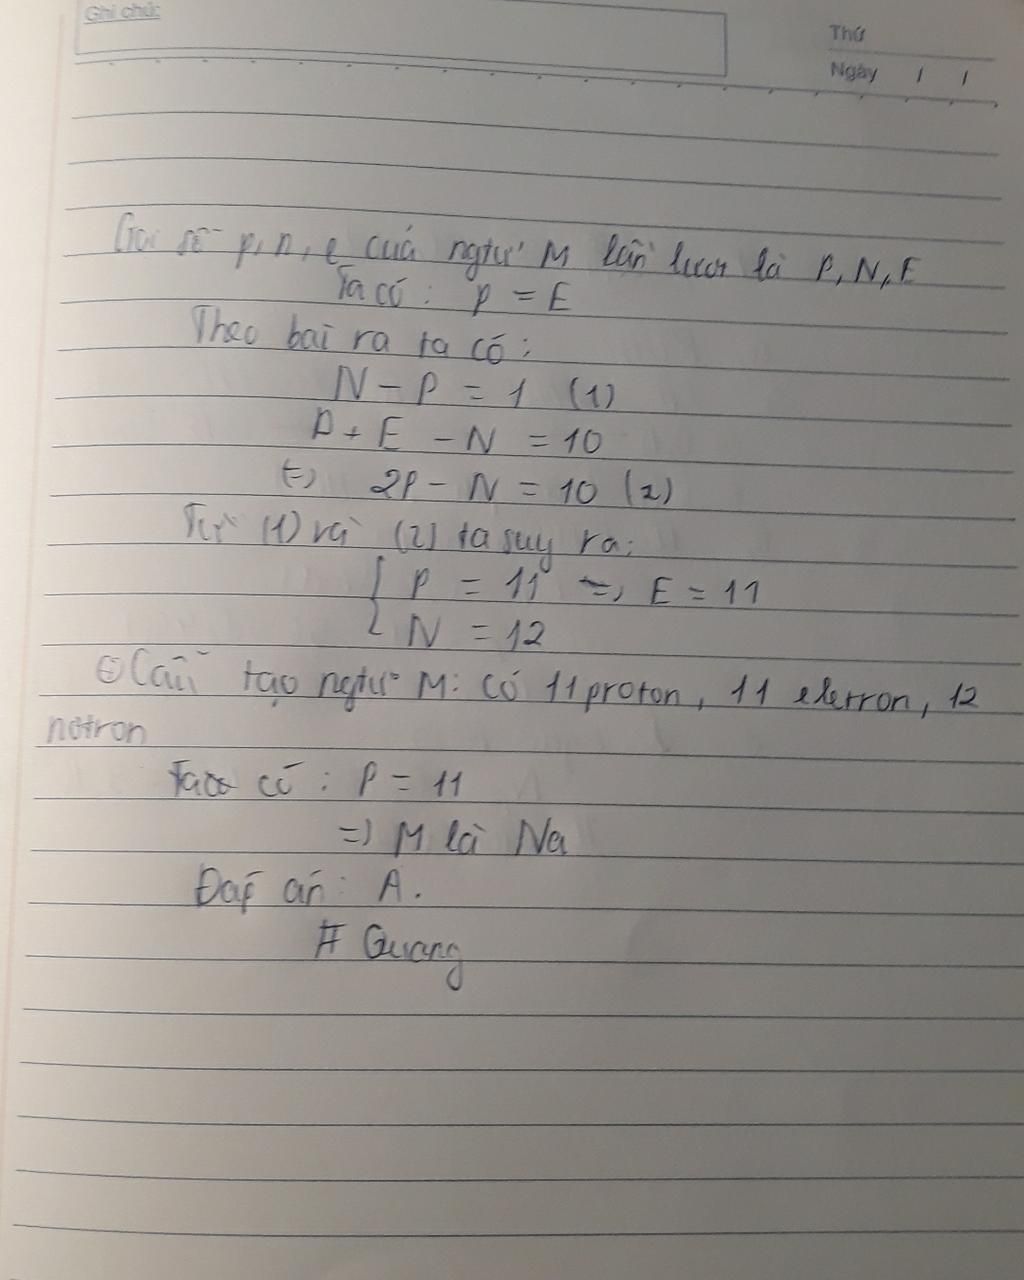 Ghi chú:
Thứ
Ngày / /
Gọi số p, n, e của ngtử M lần lượt là P, N, E
Ta có: p = E
Theo bài ra ta có:
N - P = 1 (1)
P + E - N = 10
(=) 2P - N = 10 (2)
Từ (1) và (2) ta suy ra:
{ P = 11 => E = 11
N = 12
Cấu tạo ngtử M: có 11 proton, 11 eletron, 12
nơtron
Ta có: P = 11
=) M là Na
Đáp án: A.
# Quang